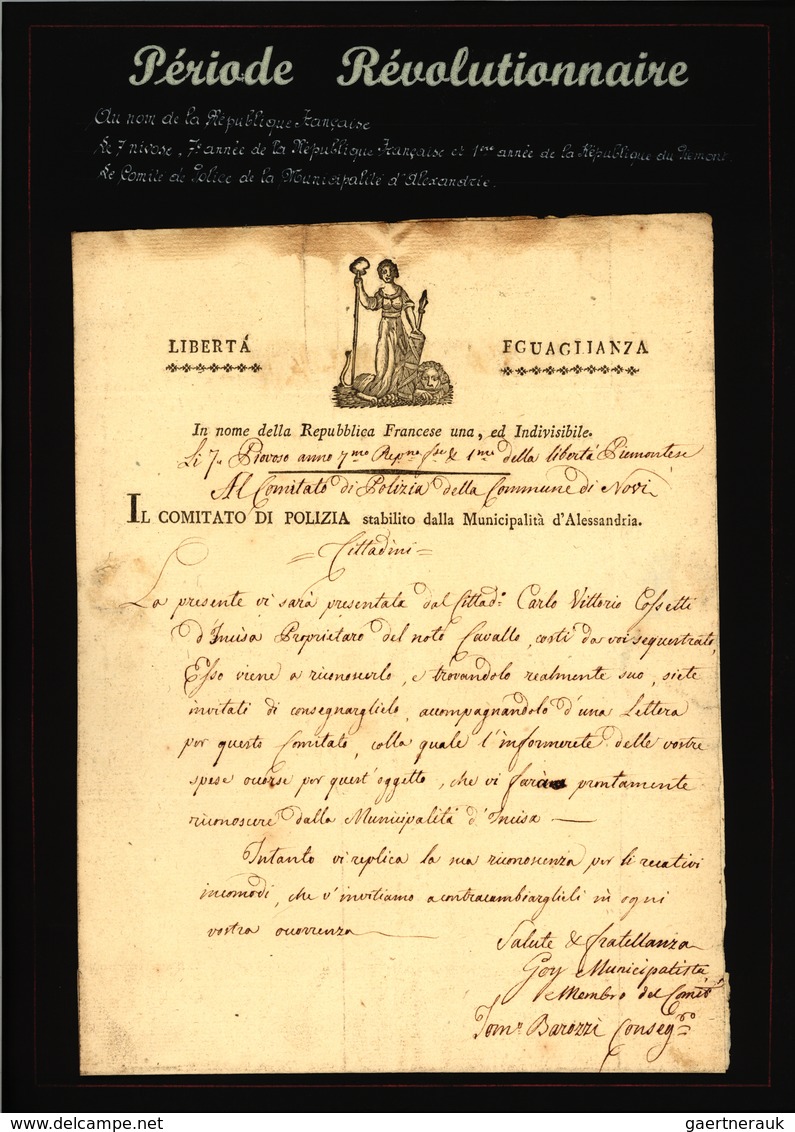 Période Révolutionnaire
Au nom de la République Française
Le 7 nivose, 7e année de la République Française et 1ère année de la République du Piemont.
Le Comité de Police de la Municipalité d'Alexandrie.
LIBERTÁ EGUAGLIANZA
In nome della Repubblica Francese una, ed Indivisibile.
Li 7. Piovoso anno 7.mo Rep.na f.se & 1.mo della libertà Piemontese
Al Comitato di Polizia della Commune di Novi
IL COMITATO DI POLIZIA stabilito dalla Municipalità d'Alessandria.
= Cittadini =
La presente vi sarà presentata dal Cittad.o Carlo Vittorio Cossetti
d'Incisa Proprietaro del noto Cavallo, costì da voi sequestrato,
Esso viene a riconoscerlo, e trovandolo realmente suo, siete
invitati di consegnarglielo, accompagnandolo d'una Lettera
per questo Comitato, colla quale l'informerete delle vostre
spese occorse per quest'oggetto, che vi farà prontamente
riconoscere dalla Municipalità d'Incisa —
Intanto vi replica la sua riconoscenza per li recativi
incomodi, che v'invitiamo a contracambiarglieli in ogni
vostra occorrenza —
Salute & fratellanza
Goy Municipalista
Membro del Comit.o
Tom.o Barozzi Conseg.ro
gaertnerauk / delcampe.net